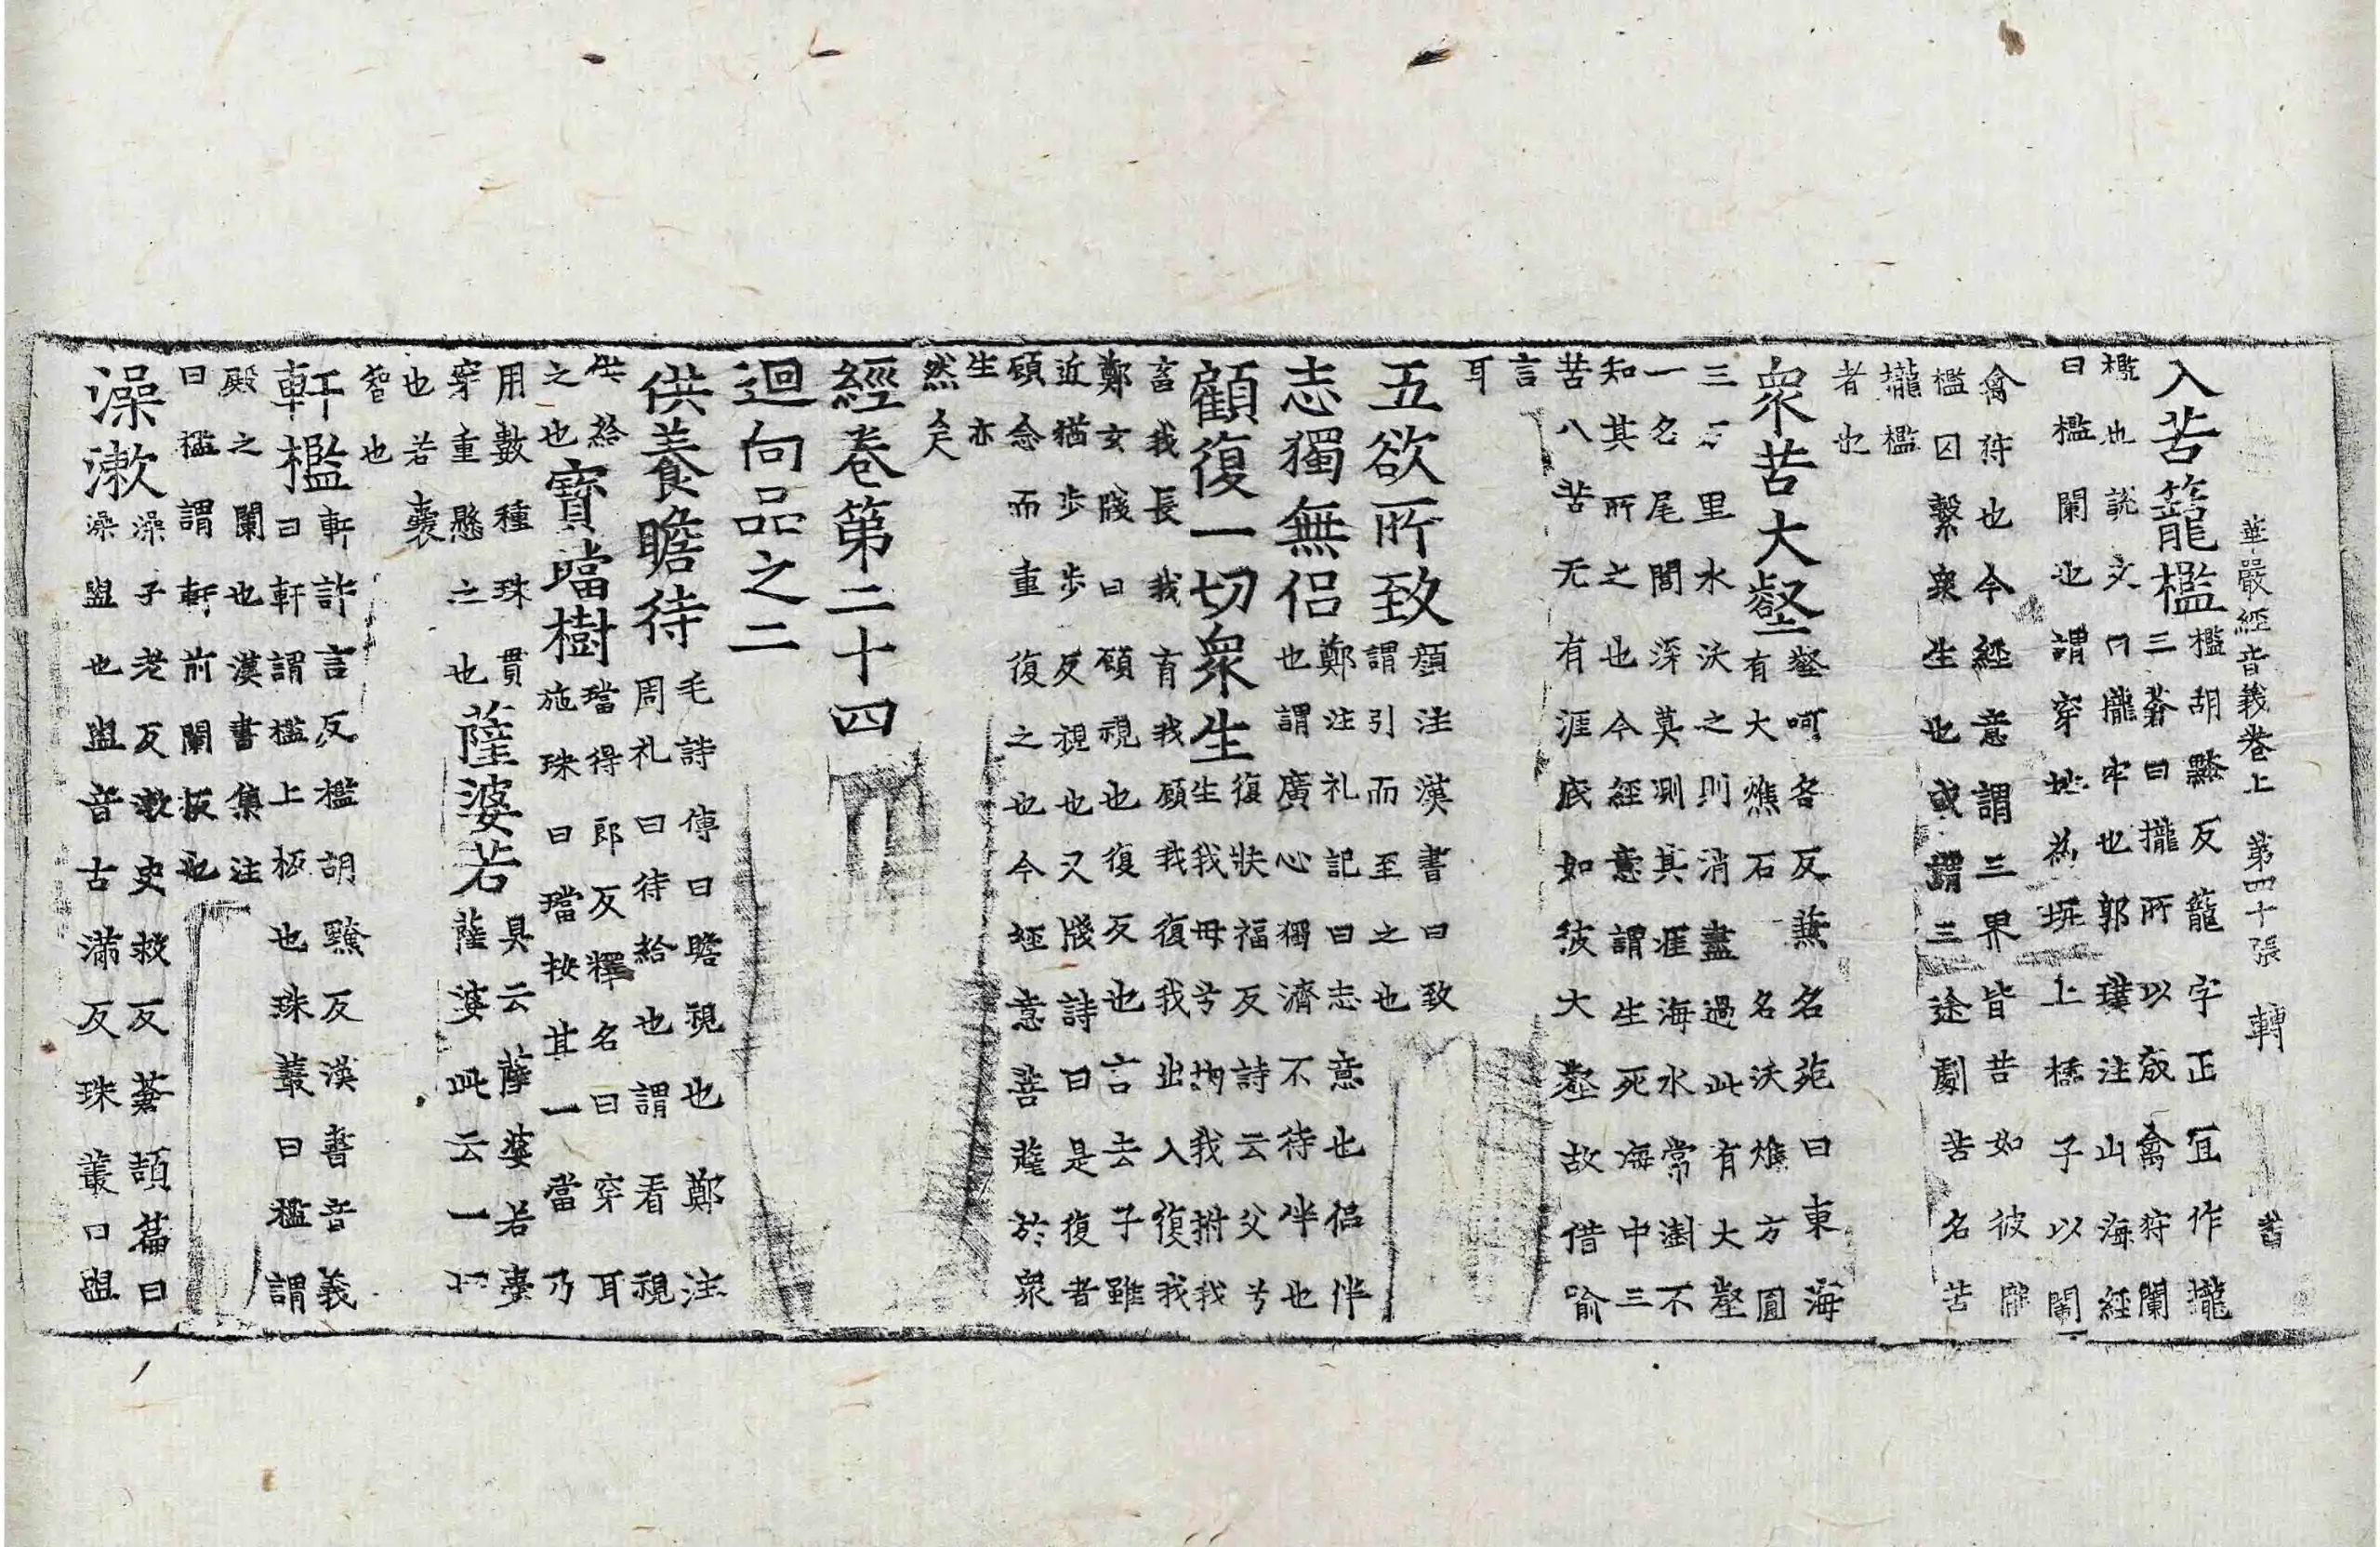 華嚴經音義卷上 第四十張 轉
入苦籠檻 檻胡黤反籠字正宜作攏
三蒼曰攏所以藏禽狩闌
檻也說文曰攏牢也郭璞注山海經
曰檻闌也謂穿地為坑上標子以闌
禽狩也今經意謂三界皆苦如彼
檻囚繫衆生也或謂三途劇苦名苦
攏檻
者也
衆苦大壑 壑呵各反蕪名苑曰東海
有大燋石名沃燋方圓
三万里水沃之則消盡過此有大壑
一名尾閭深莫測其涯海水常澍不
知其所之也今經意謂生死海中三
苦八苦无有涯底如彼大壑故借喻
言
耳
五欲所致 顏注漢書曰致
謂引而至之也
志獨無侶 鄭注礼記曰志意也侶伴
也謂廣心獨濟不待伴也
顧復一切衆生 復扶福反詩云父兮
生我母兮鞠我拊我
畜我長我育我顧我復我出入復我
鄭玄牋曰顧視也復反也言去子雖
近猶步步反視也又牋詩曰是復者
顧念而重復之也今經意菩薩於衆
生亦
然矣
經卷第二十四
迴向品之二
供養瞻待 毛詩傳曰瞻視也鄭注
周礼曰待給也謂看視
供給
之也
寶璫樹 璫得郎反釋名曰穿耳
施珠曰璫按其一當乃
用數種珠貫
穿重懸之也
薩婆若 具云薩婆若囊
薩婆此云一切
也若囊
智也
軒檻 軒許言反檻胡黤反漢書音義
曰軒謂檻上板也珠叢曰檻謂
殿之闌也漢書集注
曰檻謂軒前闌板也
澡漱 澡子老反漱史救反蒼頡篇曰
澡盥也盥音古滿反珠叢曰盥